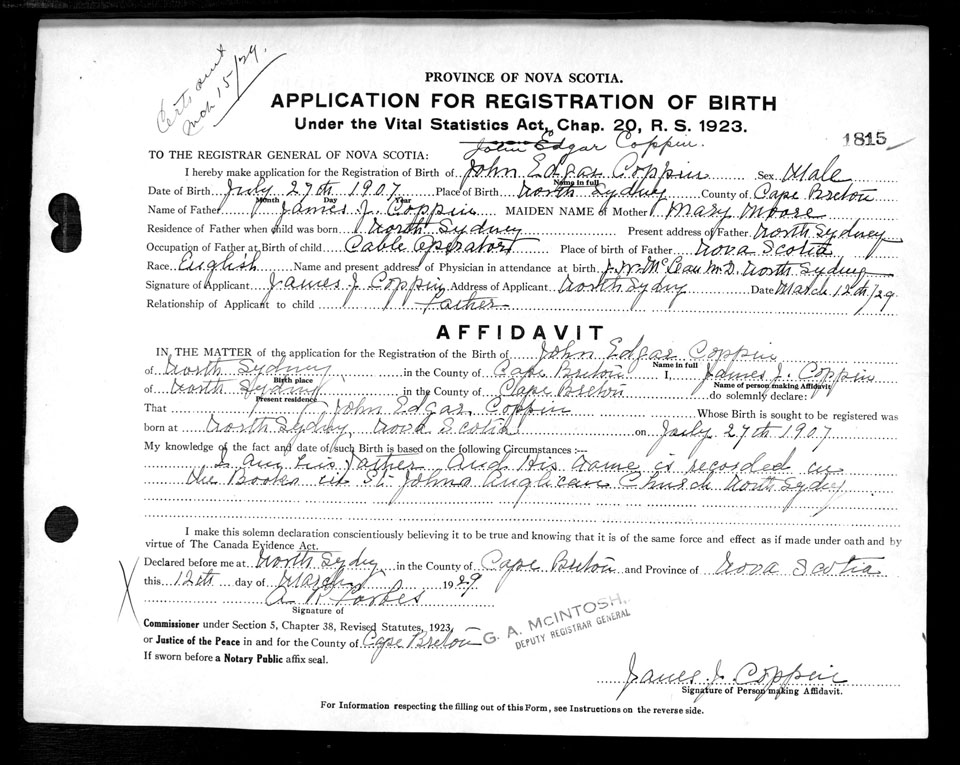 Certs sent
Mch 15/29.
PROVINCE OF NOVA SCOTIA.
APPLICATION FOR REGISTRATION OF BIRTH
Under the Vital Statistics Act, Chap. 20, R. S. 1923.
John Edgar Coppin.
1815
TO THE REGISTRAR GENERAL OF NOVA SCOTIA:
I hereby make application for the Registration of Birth of John Edgar Coppin Sex Male
Name in full
Date of Birth July 27th 1907 Place of Birth North Sydney County of Cape Breton
Month Day Year
Name of Father James J. Coppin MAIDEN NAME of Mother Mary Moore
Residence of Father when child was born North Sydney Present address of Father North Sydney
Occupation of Father at Birth of child Cable Operator Place of birth of Father Nova Scotia
Race English Name and present address of Physician in attendance at birth J. W. McLean M.D. North Sydney
Signature of Applicant James J. Coppin Address of Applicant North Sydney Date March 12th/29
Relationship of Applicant to child Father
AFFIDAVIT
IN THE MATTER of the application for the Registration of the Birth of John Edgar Coppin
Name in full
of North Sydney in the County of Cape Breton I, James J. Coppin
Birth place Name of person making Affidavit
of North Sydney in the County of Cape Breton do solemnly declare:
Present residence
That John Edgar Coppin Whose Birth is sought to be registered was
born at North Sydney Nova Scotia on July 27th 1907
My knowledge of the fact and date of such Birth is based on the following Circumstances :--
I am his Father and His name is recorded in
the Books in St. Johns Anglican Church North Sydney
I make this solemn declaration conscientiously believing it to be true and knowing that it is of the same force and effect as if made under oath and by
virtue of The Canada Evidence Act.
Declared before me at North Sydney in the County of Cape Breton and Province of Nova Scotia
this 12th day of March 1929
A R Forbes
Signature of
Commissioner under Section 5, Chapter 38, Revised Statutes, 1923,
or Justice of the Peace in and for the County of Cape Breton
G. A. McINTOSH,
DEPUTY REGISTRAR GENERAL
If sworn before a Notary Public affix seal.
James J. Coppin
Signature of Person making Affidavit.
For Information respecting the filling out of this Form, see Instructions on the reverse side.